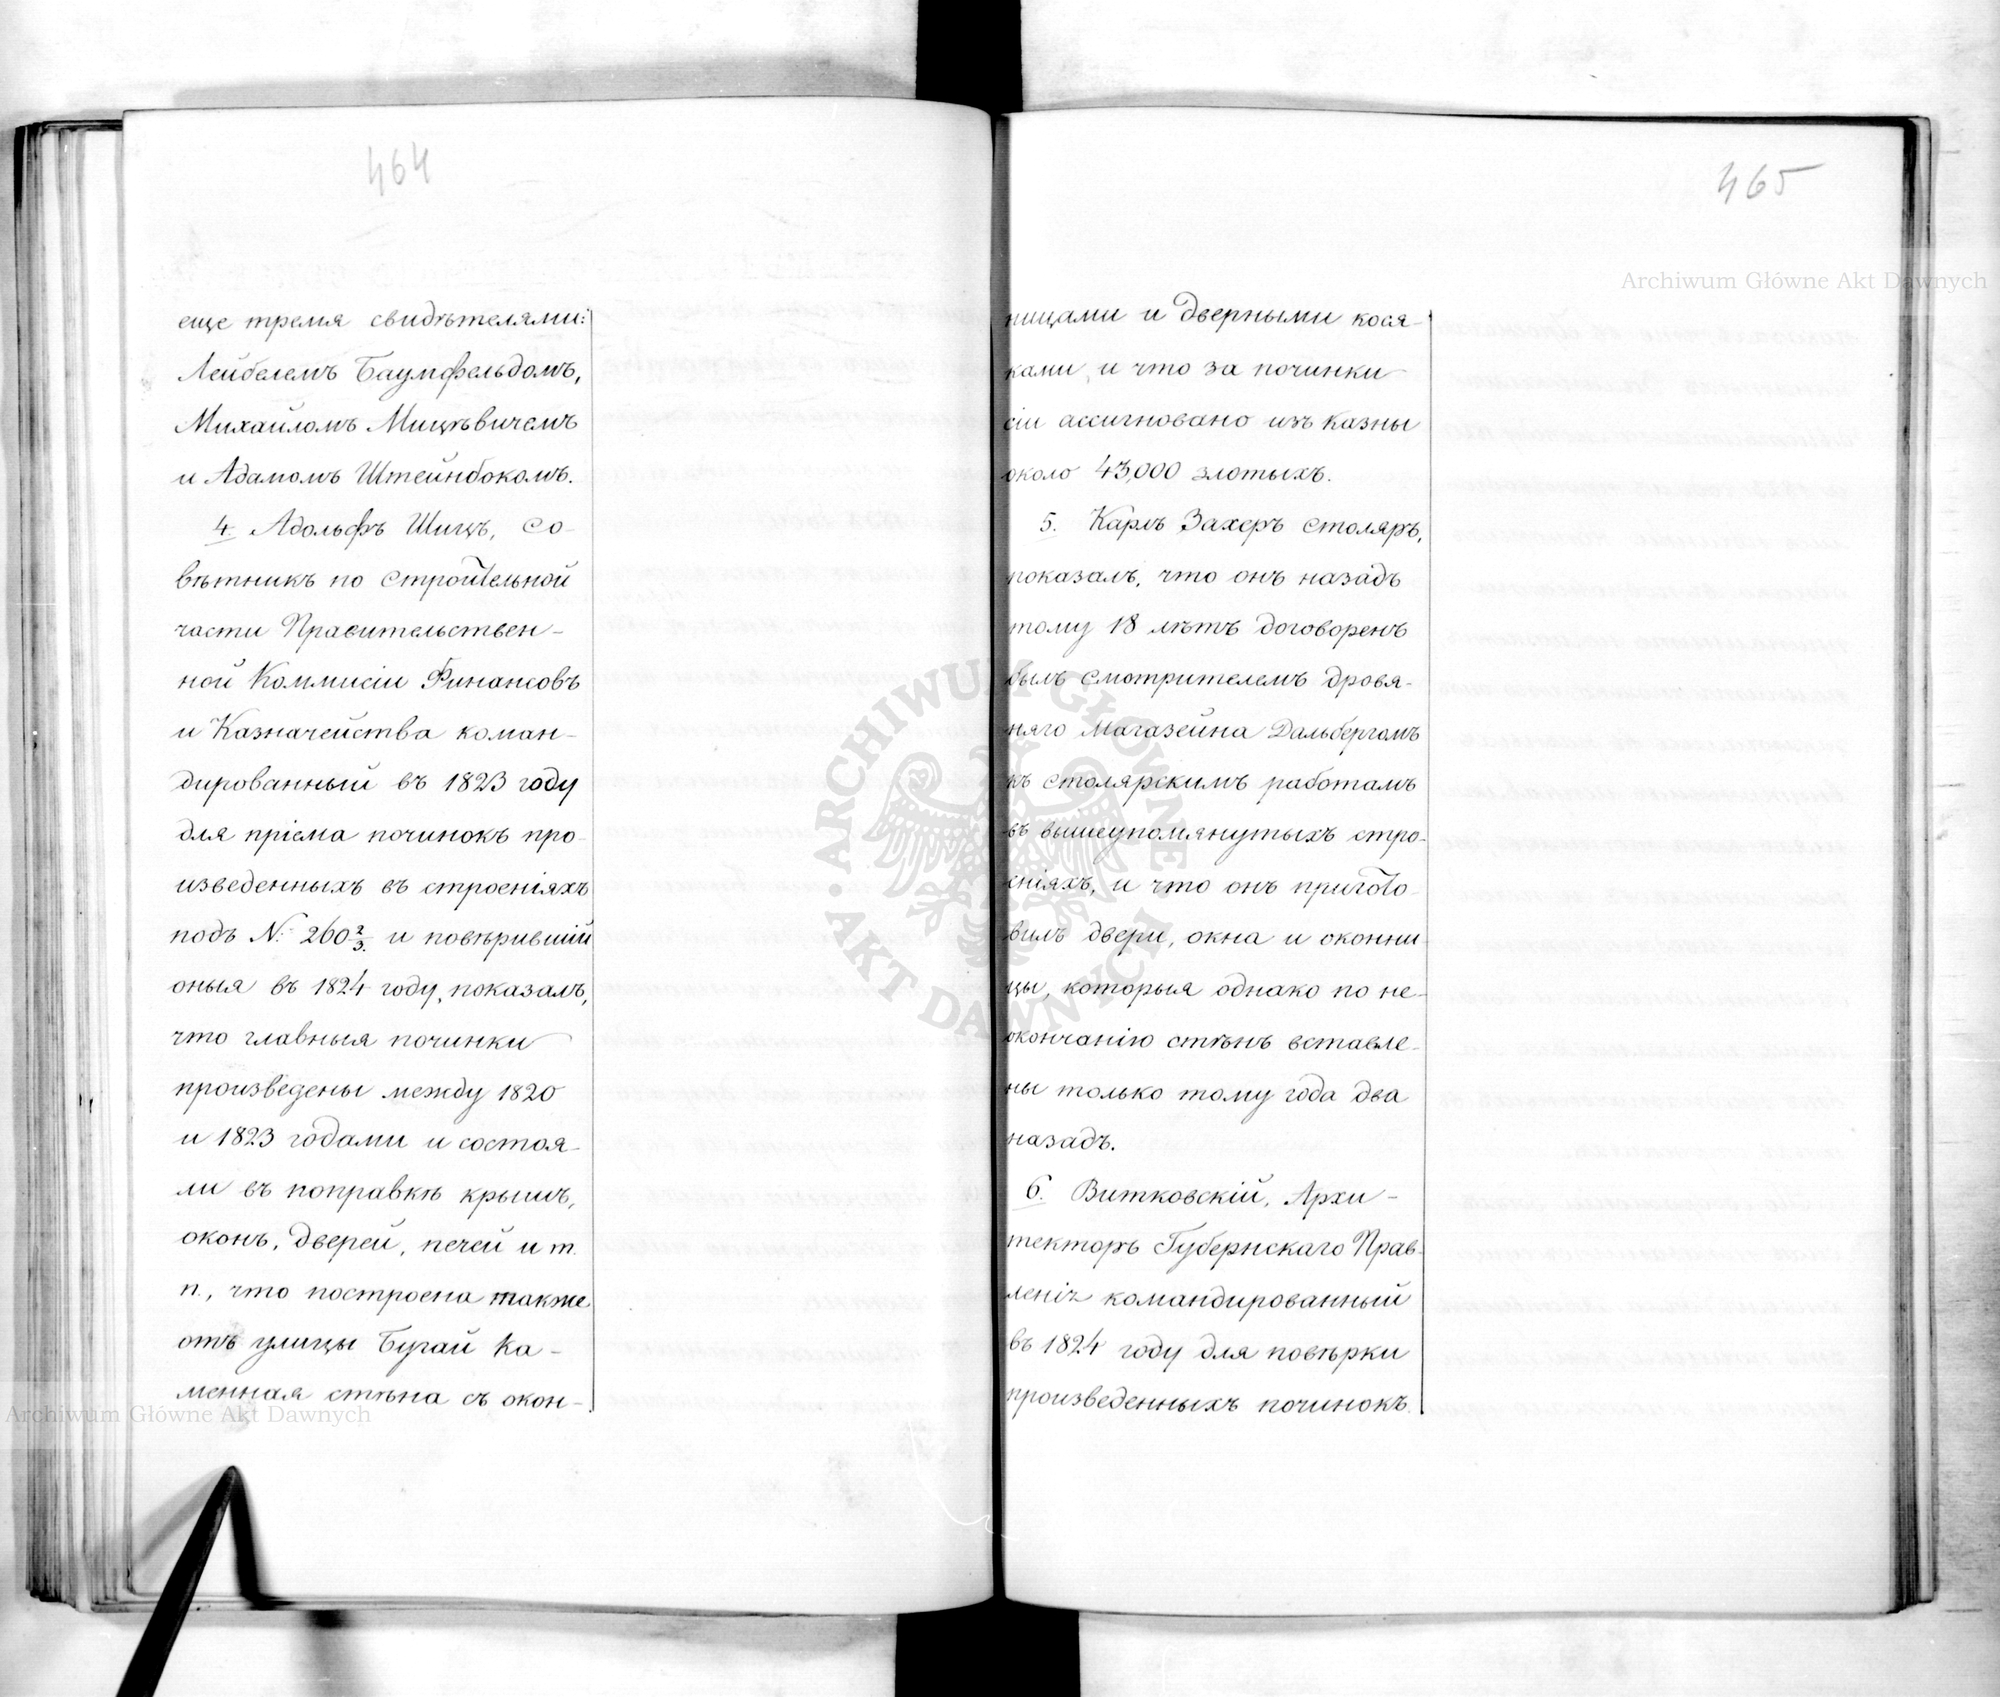 464
еще тремя свидѣтелями:
Лейбелемъ Баумфельдомъ,
Михайломъ Мицѣвичемъ
и Адамомъ Штейнбокомъ.
4. Адольфъ Шицъ, со-
вѣтникъ по строительной
части Правительствен-
ной Коммисіи Финансовъ
и Казначейства коман-
дированный въ 1823 году
для пріема починокъ про-
изведенныхъ въ строеніяхъ
подъ N: 260 2/3. и повѣрившій
оныя въ 1824 году, показалъ,
что главныя починки
произведены между 1820
и 1823 годами и состоя-
ли въ поправкѣ крышъ,
оконъ, дверей, печей и т.
п., что построена также
отъ улицы Бугай ка-
менная стѣна съ окон-
465
ницами и дверными кося-
ками, и что за починки
сіи ассигновано изъ казны
около 43,000 злотыхъ.
5. Карлъ Захеръ столяръ,
показалъ, что онъ назадъ
тому 18 лѣтъ договоренъ
былъ смотрителемъ дровя-
няго магазейна Дальбергомъ
къ столярскимъ работамъ
въ вышеупомянутыхъ стро-
еніяхъ, и что онъ пригото-
вилъ двери, окна и оконни-
цы, которыя однако по не-
окончанію стѣнъ вставле-
ны только тому года два
назадъ.
6. Витковскій, Архи-
текторъ Губернскаго Прав-
леніz командированный
въ 1824 году для повѣрки
произведенныхъ починокъ
Archiwum Główne Akt Dawnych
Archiwum Główne Akt Dawnych
ARCHIWUM GŁÓWNE AKT DAWNYCH